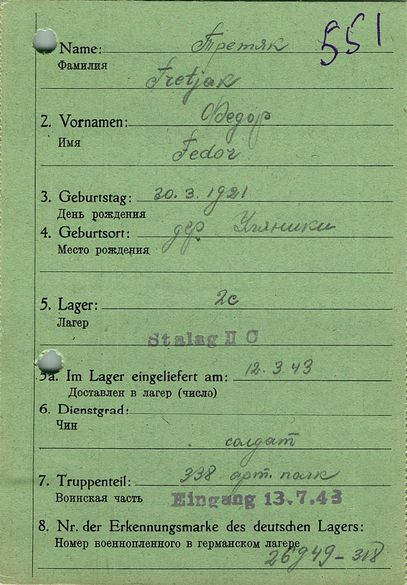 551
Name: Претяк
Фамилия
Tretjak
2. Vornamen: Федор
Имя
Fedor
3. Geburtstag: 30. 3. 1921
День рождения
4. Geburtsort: дер Угляники
Место рождения
5. Lager: 2c
Лагер
Stalag II C
5a. Im Lager eingeliefert am: 12.3.43
Доставлен в лагер (число)
6. Dienstgrad:
Чин
солдат
7. Truppenteil: 338 арт. полк
Воинская часть Eingang 13.7.43
8. Nr. der Erkennungsmarke des deutschen Lagers:
Номер военнопленного в германском лагере
26949-318